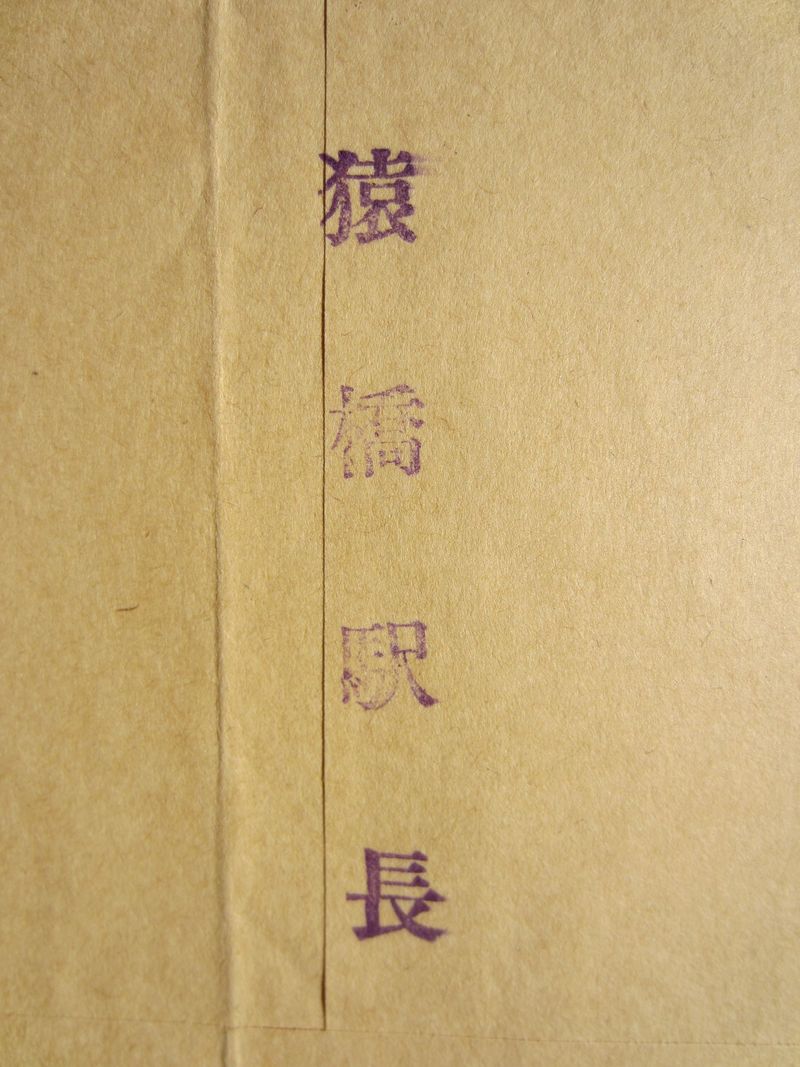 猿橋駅長